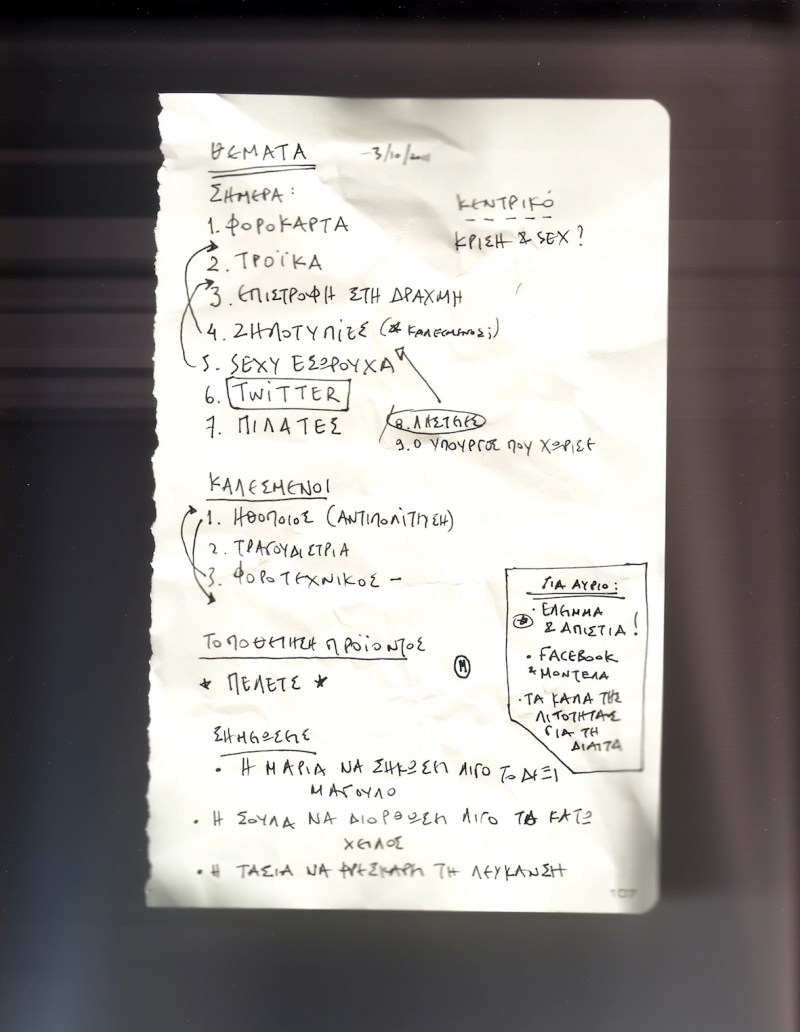 ΘΕΜΑΤΑ -3/10/2011
ΣΗΜΕΡΑ:
1. ΦΟΡΟΚΑΡΤΑ
2. ΤΡΟΪΚΑ
3. ΕΠΙΣΤΡΟΦΗ ΣΤΗ ΔΡΑΧΜΗ
4. ΖΗΛΟΤΥΠΙΕΣ (& ΚΑΛΕΣΜΕΝΟΣ;)
5. SEXY ΕΣΩΡΟΥΧΑ
6. TWITTER
7. ΠΙΛΑΤΕΣ
8.
9. Ο ΥΠΟΥΡΓΟΣ ΠΟΥ ΧΩΡΙΣΕ
ΚΕΝΤΡΙΚΟ
ΚΡΙΣΗ & SEX?
ΚΑΛΕΣΜΕΝΟΙ
1. ΗΘΟΠΟΙΟΣ (ΑΝΤΙΠΟΛΙΤΗΣΗ)
2. ΤΡΑΓΟΥΔΙΣΤΡΙΑ
3. ΦΟΡΟΤΕΧΝΙΚΟΣ -
ΤΟΠΟΘΕΤΗΣΗ ΠΡΟΪΟΝΤΟΣ
* ΠΕΛΕΤΣ *
Μ
ΓΙΑ ΑΥΡΙΟ:
· ΕΛΕΙΜΜΑ
& ΑΠΙΣΤΙΑ!
· FACEBOOK
& ΜΟΝΤΕΛΑ
· ΤΑ ΚΑΛΑ ΤΗΣ
ΛΙΤΟΤΗΤΑΣ
ΓΙΑ ΤΗ
ΔΙΑΙΤΑ
ΣΗΜΕΙΩΣΕΙΣ
· Η ΜΑΡΙΑ ΝΑ ΣΗΚΩΣΕΙ ΛΙΓΟ ΤΟ ΔΕΞΙ
ΜΑΓΟΥΛΟ
· Η ΣΟΥΛΑ ΝΑ ΔΙΟΡΘΩΣΕΙ ΛΙΓΟ ΤΟ ΚΑΤΩ
ΧΕΙΛΟΣ
· Η ΤΑΣΙΑ ΝΑ ΦΡΕΣΚΑΡΕΙ ΤΗ ΛΕΥΚΑΝΣΗ
107